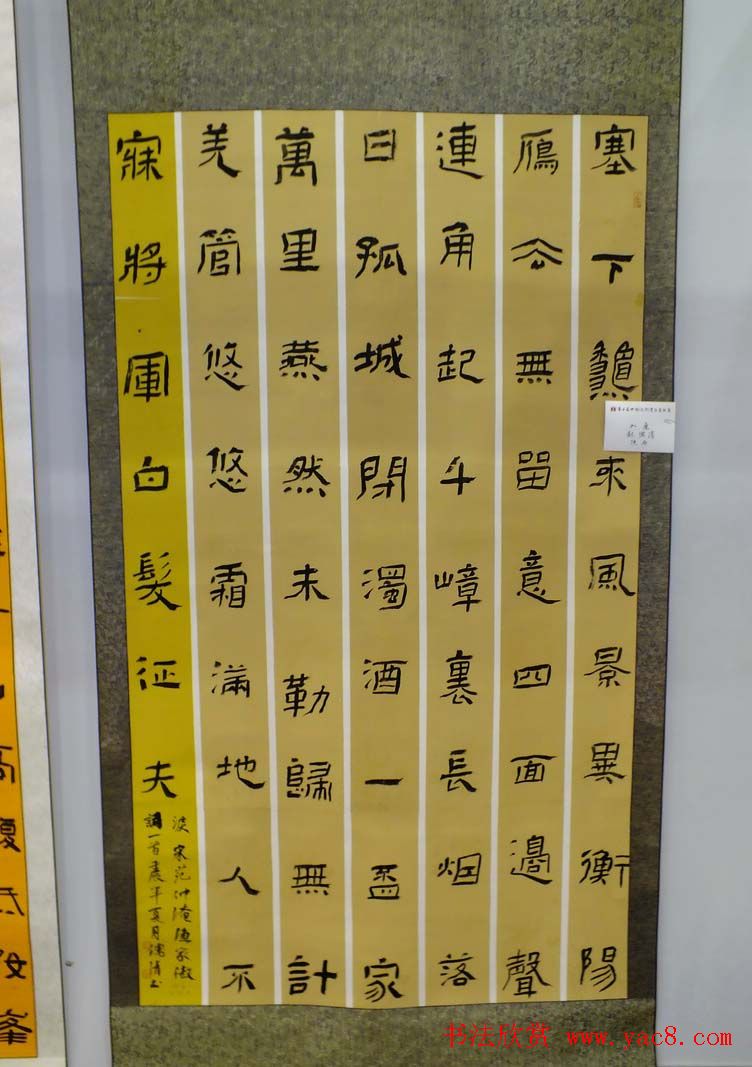 塞下龝來風景異衡陽
鴈去無畱意四面邊聲
連角起千嶂裏長烟落
日孤城閉濁酒一盃家
萬里燕然未勒歸無計
羌管悠悠霜滿地人不
寐將軍白髮征夫
淚 宋范仲淹漁家傲
詞一首 辰年夏月
书法欣赏 www.yac8.com